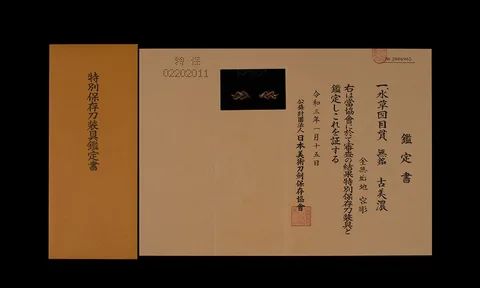 特別保存刀装具鑑定書
特保
02202011
鑑定書
一、水草図目貫 無銘 古美濃
金無垢地 容彫
右は當協會に於て審査の結果特別保存刀装具と
鑑定しこれを証する
令和三年一月十五日
公益財団法人 日本美術刀剣保存協會